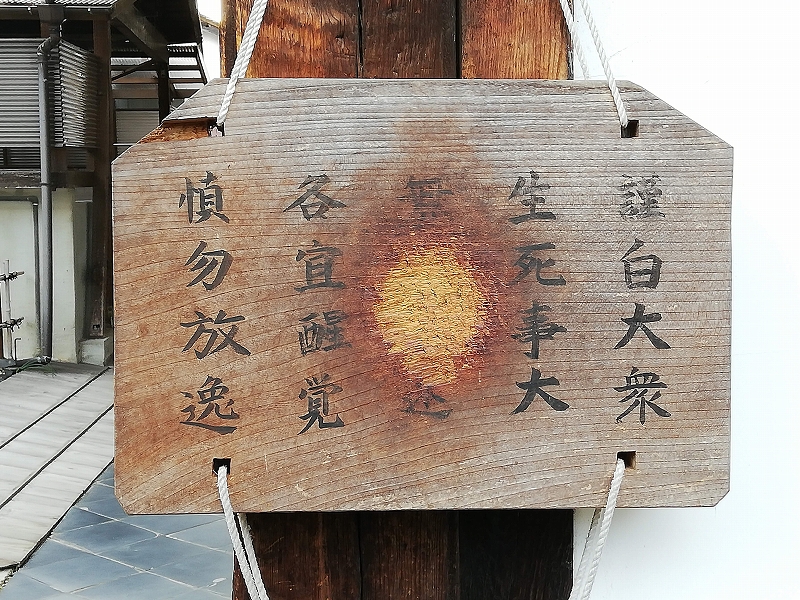 謹白大衆
生死事大
無
各宜醒覚
慎勿放逸